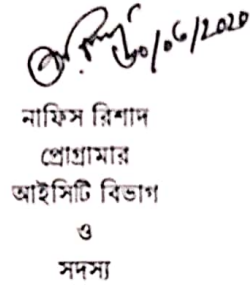 ৩০/০৬/2020
নাফিস রিশাদ
প্রোগ্রামার
আইসিটি বিভাগ
ও
সদস্য